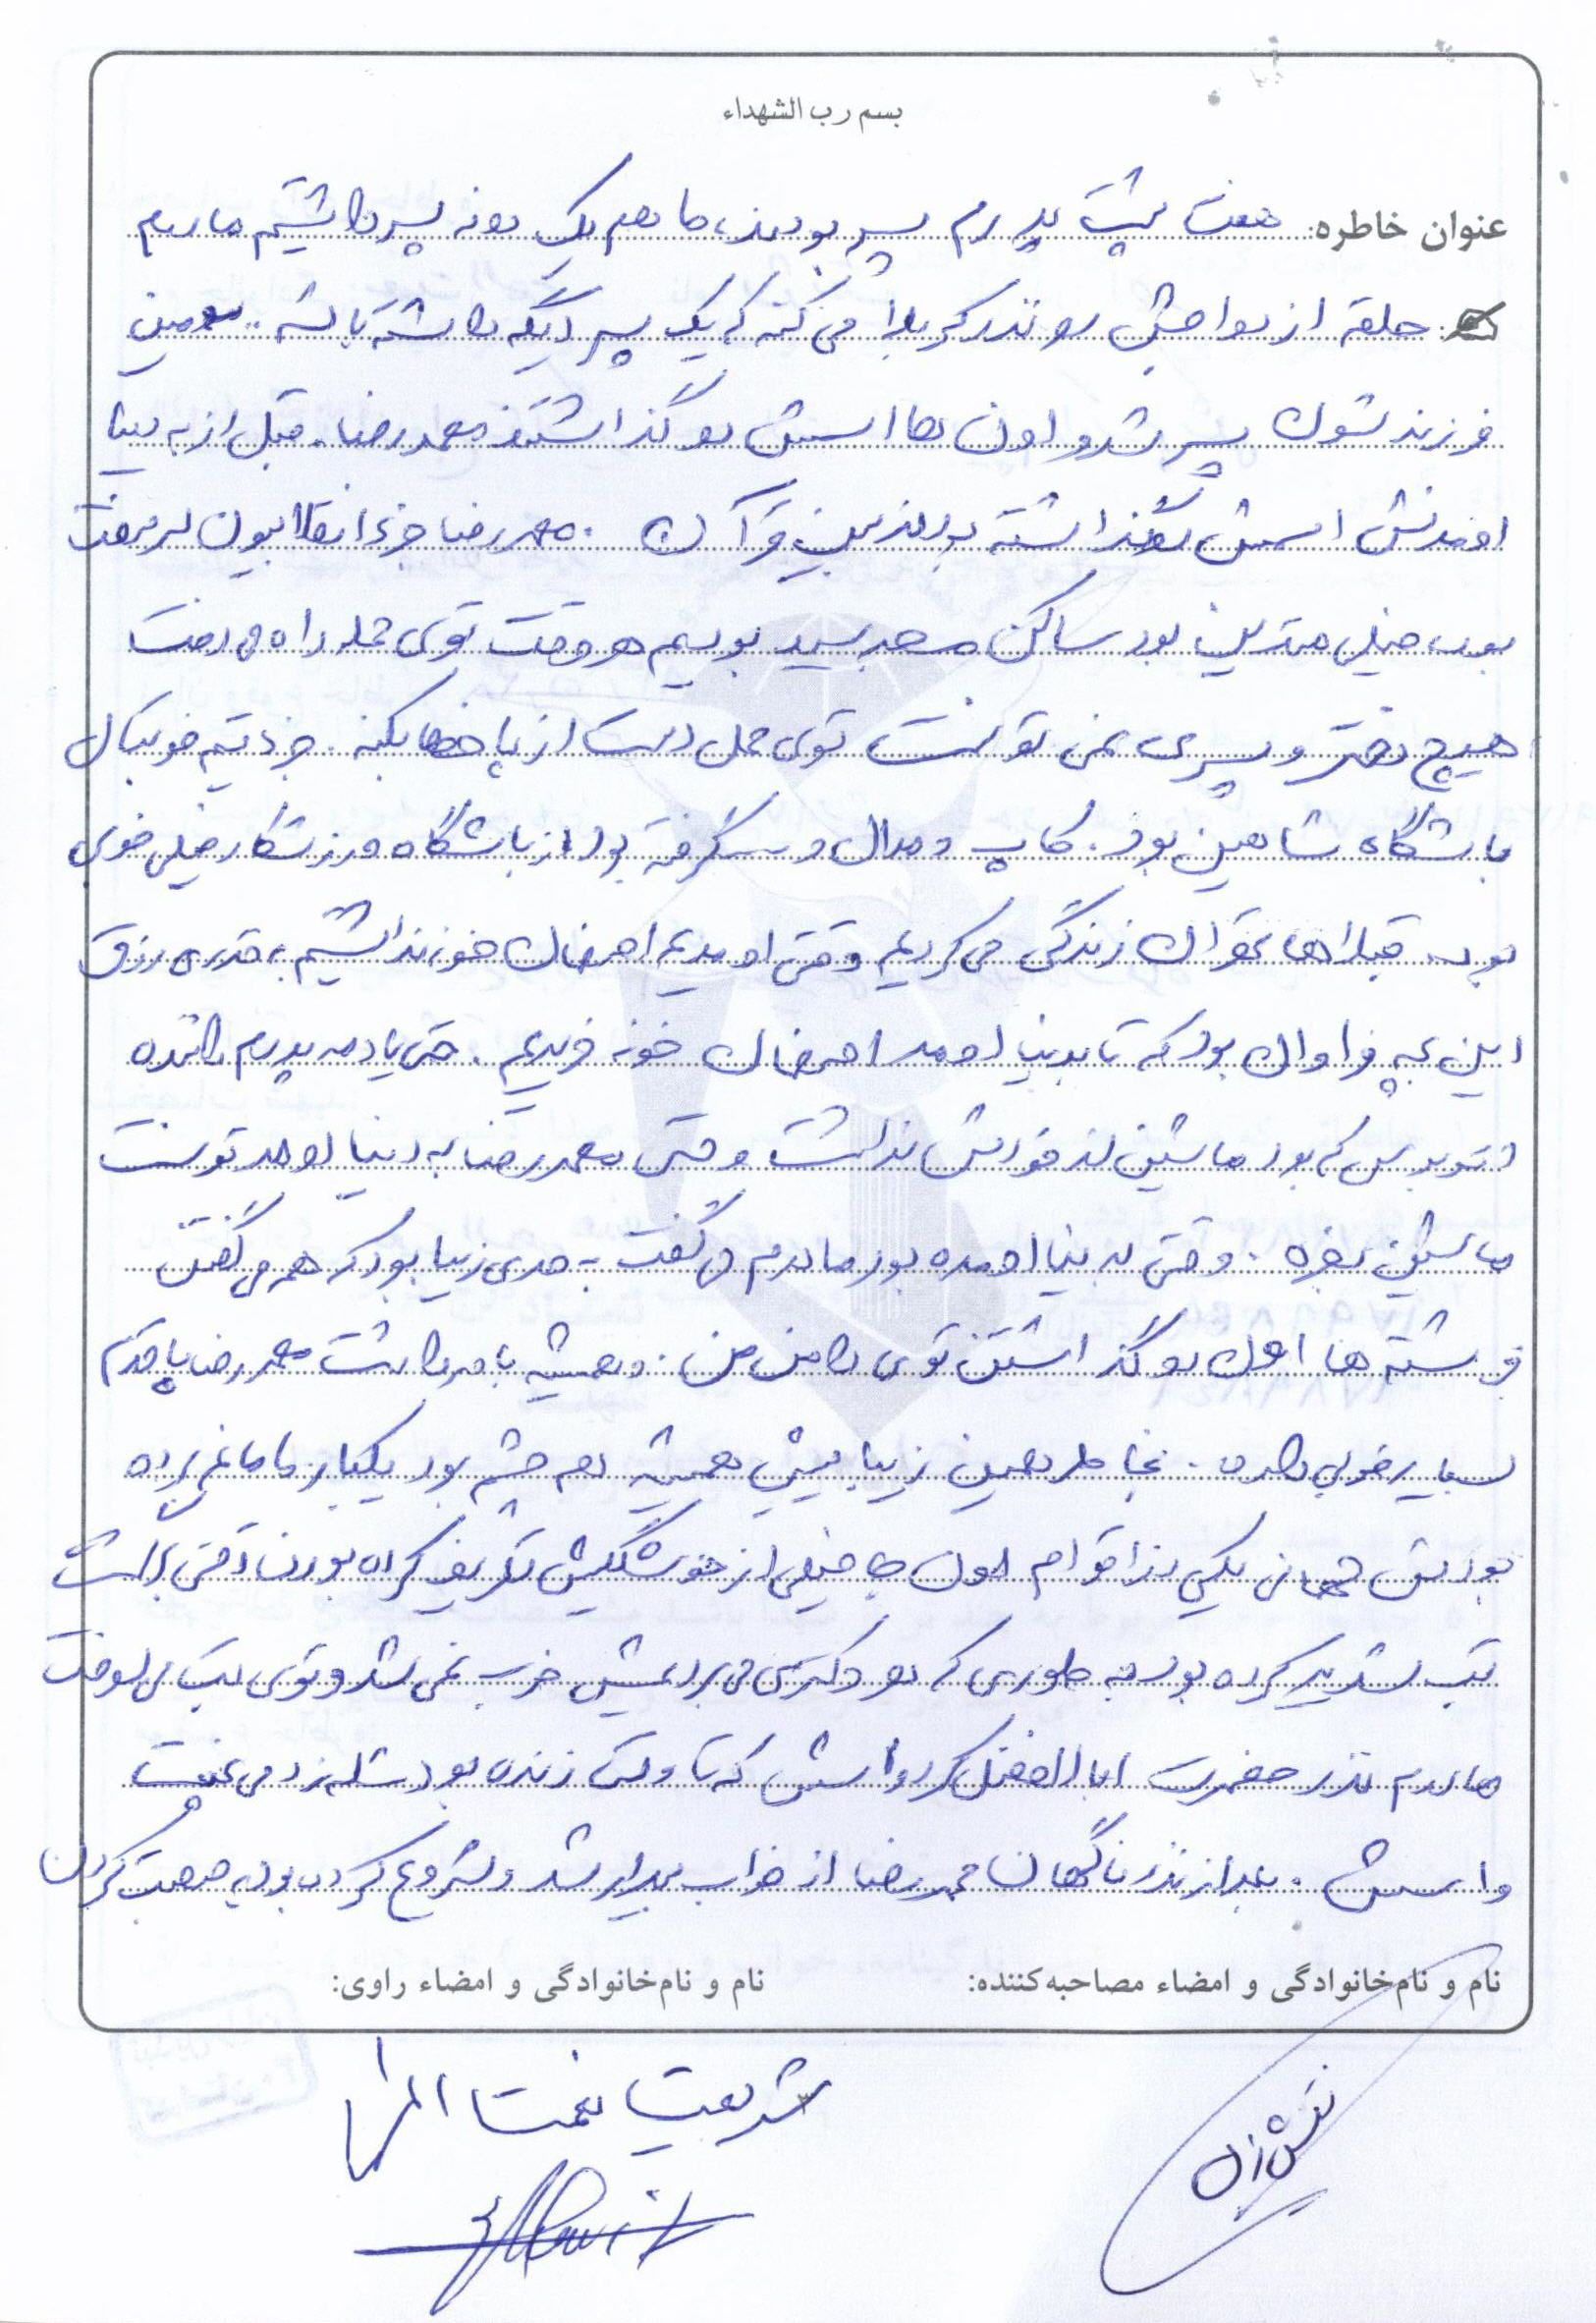 بسم رب الشهداء
عنوان خاطره: هفت پشت پدرم پسر بودند، ما هم یک دونه پسر داشتیم مادرم
حلقه ازدواجش رو نذر کربلا می کنه که یک پسر دیگه داشته باشه .. سومین
فرزندشون پسر شد و اون ها اسمش رو گذاشتند محمدرضا . قبل از به دنیا
اومدنش اسمش رو گذاشته بودند بین قرآن . محمدرضا جزء انقلابیون
بود خیلی متدین بود ساکن مسجد سید بودیم هر وقت توی محله راه می رفت
هیچ دختر و پسری نمی تونست توی محل دست از پا خطا بکنه . جزء تیم فوتبال
باشگاه شاهین بود . کاپ و مدال و گرفته بود از باشگاه ورزشکار خیلی خوبی
بود قبلا اهواز زندگی می کردیم وقتی اومدیم اصفهان خونه نداشتیم به قدری رزق
این بچه فراوان بود که تا بدنیا اومد اصفهان خونه خریدیم . حتی یادمه پدرم راننده
اتوبوس که بود ماشین از خودش نداشت وقتی محمدرضا به دنیا اومد تونست
ماشین بخره . وقتی به دنیا اومده بود مادرم می گفت به قدری زیبا بود که همه می گفتن
فرشته ها اون رو گذاشتن توی دامن من . و همیشه باور داشت محمدرضا پا قدم
بسیار خوبی داره . بخاطر همین زیباییش همیشه تو چشم بود یکبار مامانم برده
بودنش مهمانی یکی از اقوام اون جا خیلی از خوشگلیش تعریف کرده بودن وقتی برگشت
تب شدید کرده بود به طوری که هر دکتری می بردیمش خوب نمی شد و توی تب می سوخت
مادرم نذر حضرت اباالفضل کرد واسش که تا وقتی زنده بود شله زرد می پخت
واسش . بعد از نذر ناگهان محمدرضا از خواب بیدار شد و شروع کرده بود به صحبت کردن
نام و نام‌خانوادگی و امضاء مصاحبه‌کننده:
نام و نام‌خانوادگی و امضاء راوی:
شریعت نعمت اللهی